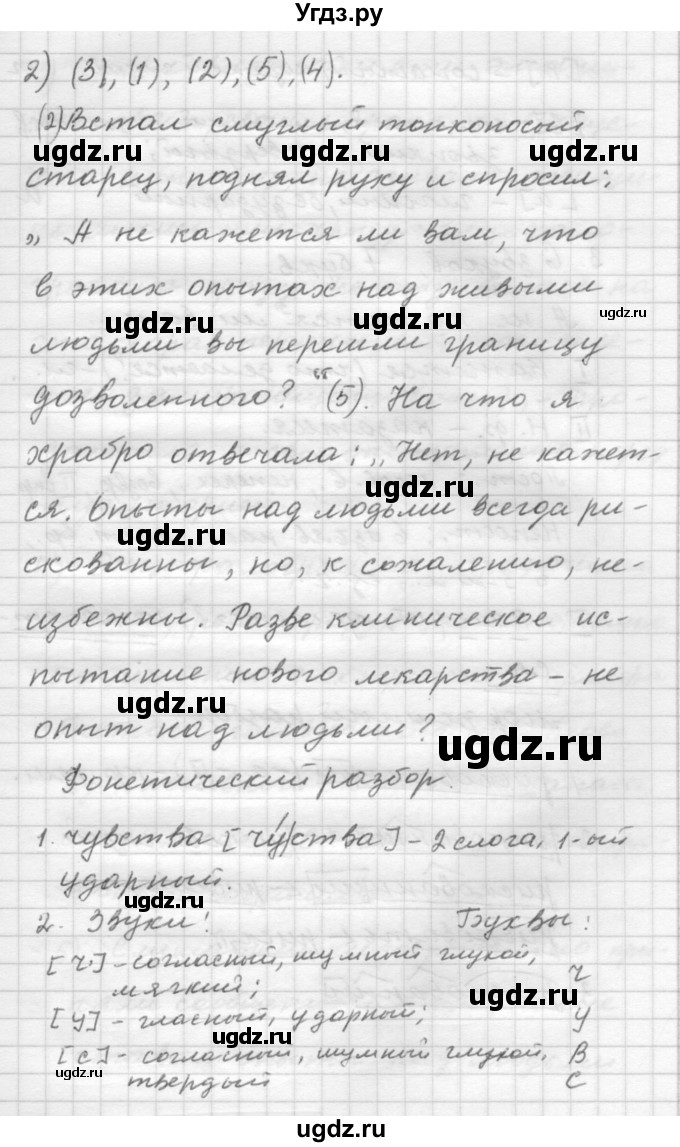 Угдз.ру
2) (3), (1), (2), (5), (4).
(2) Встал смуглый тонконосый
ugdz.ru ugdz.ru ugdz.ru
старец, поднял руку и спросил:
„А не кажется ли вам, что
в этих опытах над живыми
ugdz.ru ugdz.ru ugdz.ru
людьми вы перешли границу
дозволенного?“ (5). На что я
храбро отвечала: „Нет, не кажет-
ugdz.ru
ся. Опыты над людьми всегда ри-
ugdz.ru
скованны, но, к сожалению, не-
избежны. Разве клиническое ис-
пытание нового лекарства – не
ugdz.ru
опыт над людьми?
ugdz.ru
Фонетический разбор.
1. чувства [ч'у́|ства] – 2 слога, 1-ый
ударный.
ugdz.ru
2. Звуки: Буквы:
[ч'] – согласный, шумный глухой, ч
мягкий;
ugdz.ru
[у] – гласный, ударный; у
[с] – согласный, шумный глухой, в
ugdz.ru
твердый с
ugdz.ru